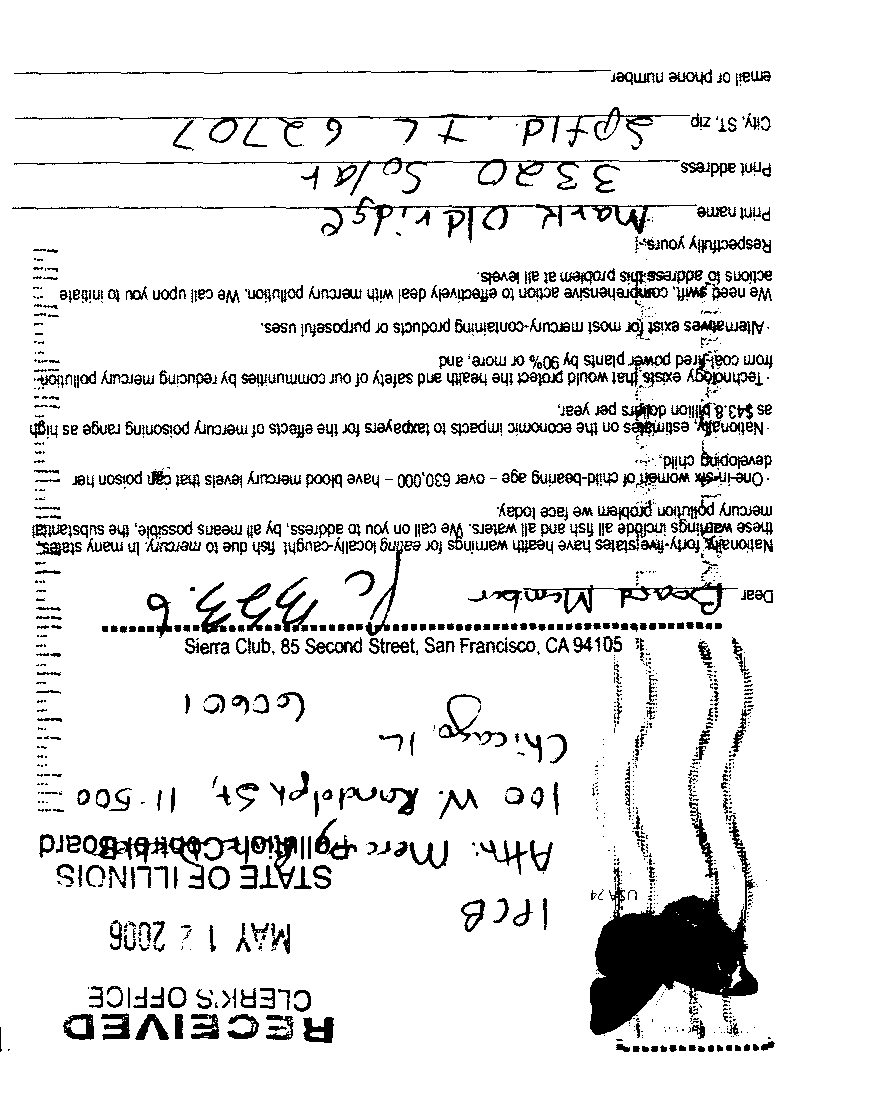 RECEIVED
CLERK'S OFFICE
MAY 12 2006
STATE OF ILLINOIS
Pollution Control Board
USA 24
IPCB
Attn: Mercury Docket
100 W. Randolph St, 11-500
Chicago, IL
60601
Sierra Club, 85 Second Street, San Francisco, CA 94105
Dear Board Member
PC 323.6
Nationally, forty-five states have health warnings for eating locally-caught fish due to mercury. In many states,
these warnings include all fish and all waters. We call on you to address, by all means possible, the substantial
mercury pollution problem we face today.
·One-in-six women of child-bearing age – over 630,000 – have blood mercury levels that can poison her
developing child,
·Nationally, estimates on the economic impacts to taxpayers for the effects of mercury poisoning range as high
as $43.8 billion dollars per year,
·Technology exists that would protect the health and safety of our communities by reducing mercury pollution
from coal-fired power plants by 90% or more, and
·Alternatives exist for most mercury-containing products or purposeful uses.
We need swift, comprehensive action to effectively deal with mercury pollution. We call upon you to initiate
actions to address this problem at all levels.
Respectfully yours,
Print name Mark Oldridge
Print address 3320 Solar
City, ST, zip Spfld IL 62707
email or phone number